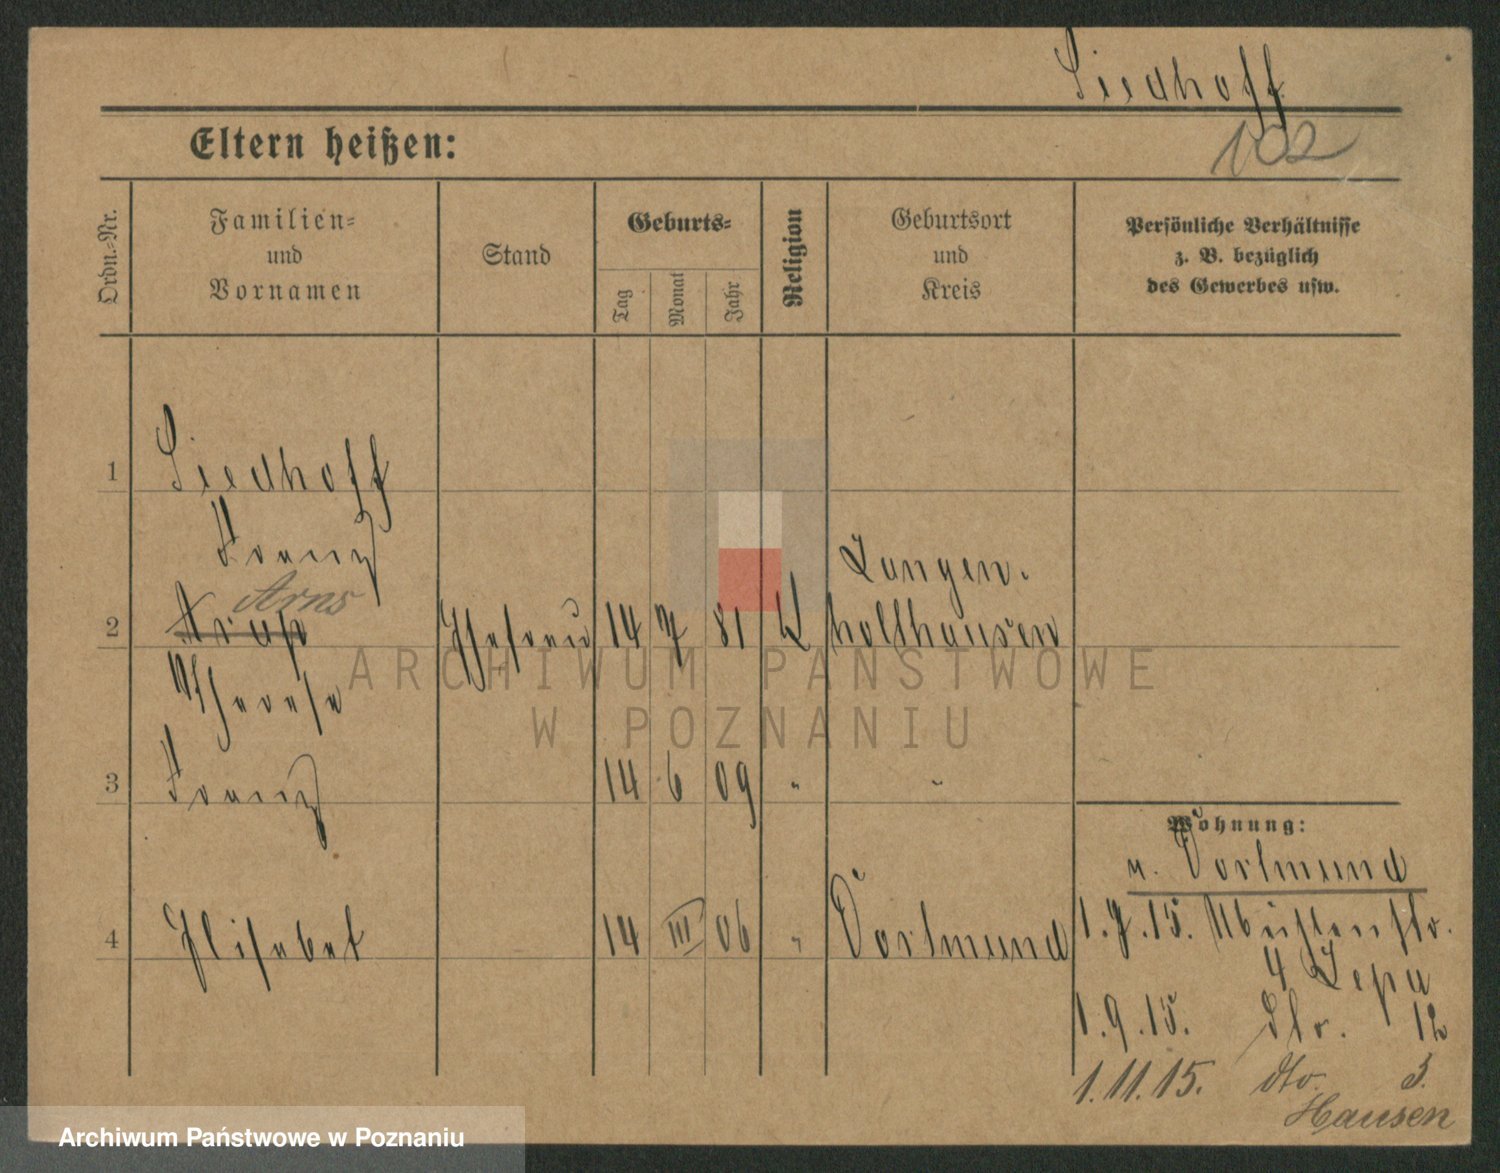 Siedhoff
102
Eltern heißen:
Ordn.-Nr.
Familien=
und
Vornamen
Stand
Geburts=
Tag
Monat
Jahr
Religion
Geburtsort
und
Kreis
Persönliche Verhältnisse
z. B. bezüglich
des Gewerbes usw.
1 Siedhoff
Franz
Arns
Langen-
2 Ehefrau 14 7 81 K holthausen
Therese
3 Franz 14 6 09 " "
Wohnung:
v. Dortmund
4 Elisabet 14 III 06 " Dortmund
1.7.15.
4
1.9.15. Str. 12
1.11.15. dto. 3.
Hausen
ARCHIWUM PAŃSTWOWE
W POZNANIU
Archiwum Państwowe w Poznaniu